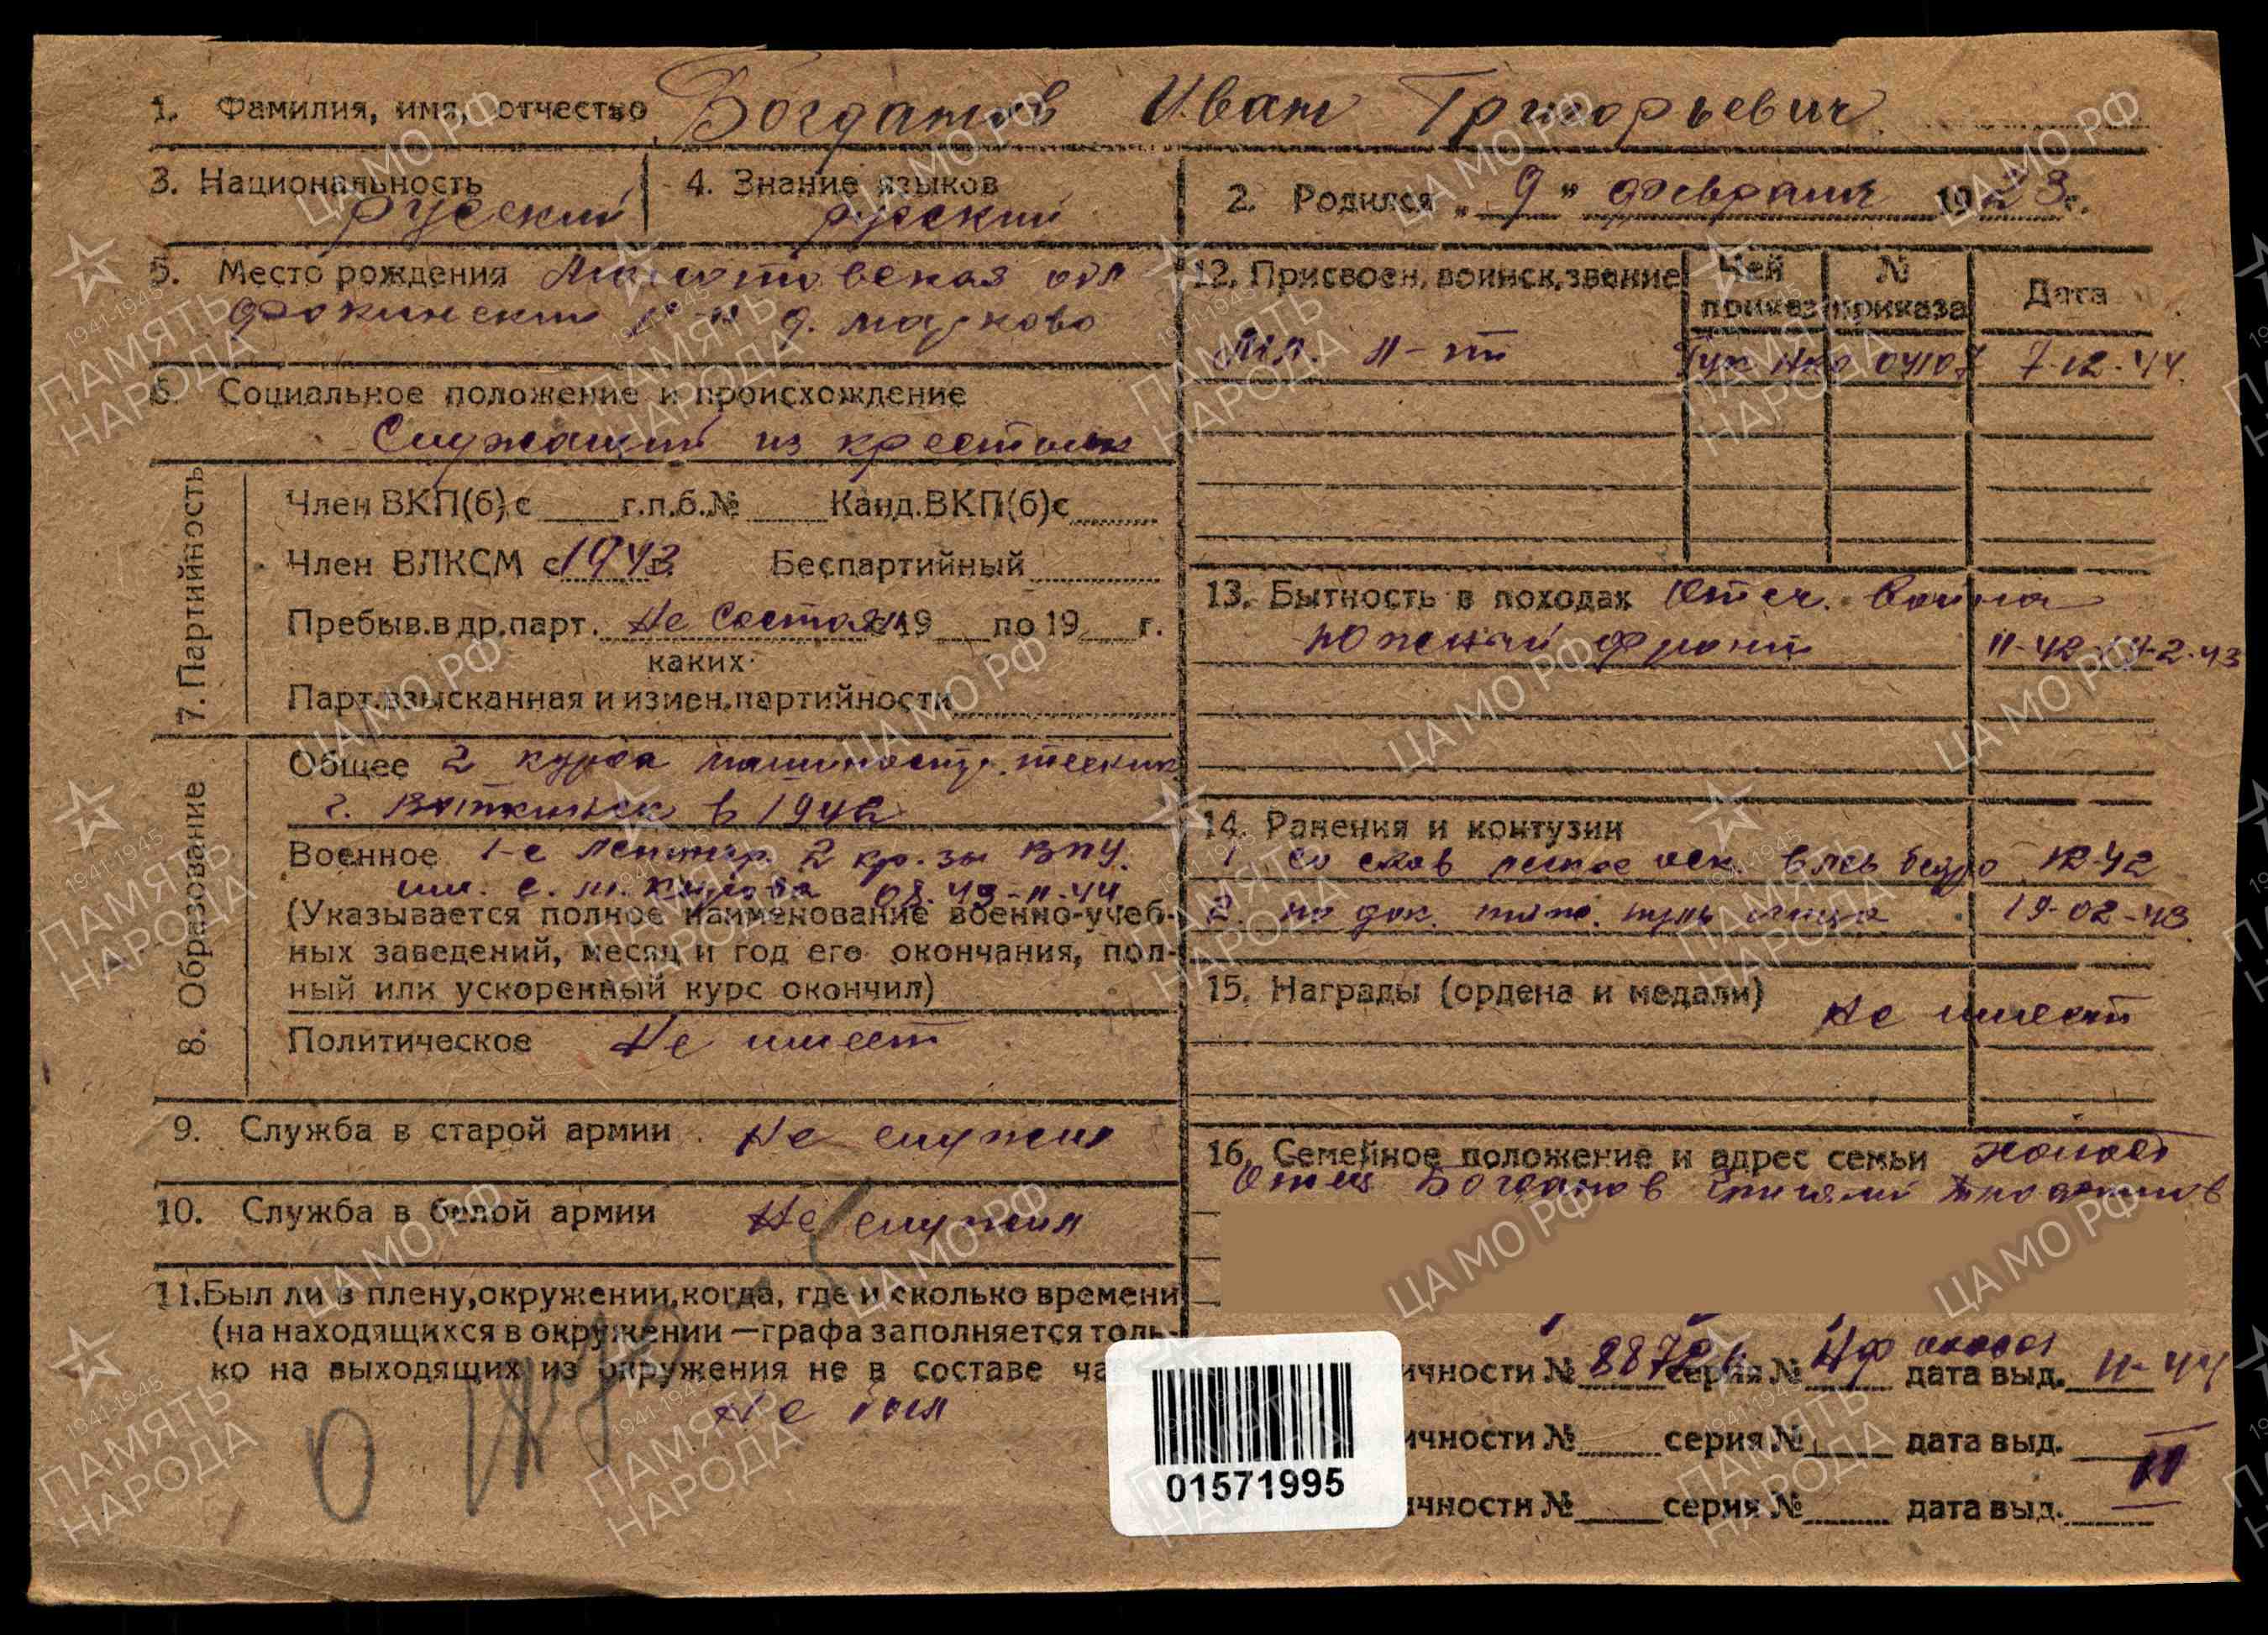 1. Фамилия, имя, отчество Богданов Иван Григорьевич
3. Национальность русский
4. Знание языков русский
2. Родился „9" февраля 1923г.
5. Место рождения Молотовская обл
Фокинский р-н д. Марково
6. Социальное положение и происхождение
Служащий из крестьян
7. Партийность
Член ВКП(б) с г.п.б.№ Канд.ВКП(б)с
Член ВЛКСМ с 1943 Беспартийный
Пребыв.в др.парт. Не состоял с 19 по 19 г.
каких
Парт.взысканная и измен.партийности
8. Образование
Общее 2 курса машиностр. техник
г. Воткинск в 1942
Военное 1-е Ленингр. 2 кр.зн ВПУ.
им. С. М. Кирова 08.43-11.44
(Указывается полное наименование военно-учеб-
ных заведений, месяц и год его окончания, пол-
ный или ускоренный курс окончил)
Политическое Не имеет
9. Служба в старой армии Не служил
10. Служба в белой армии Не служил
11.Был ли в плену,окружении,когда, где и сколько времени
(на находящихся в окружении—графа заполняется толь-
ко на выходящих из окружения не в составе ча
Не был
0
12. Присвоен. воинск. звание Чей приказ № приказа Дата
Мл. л-т ГУК НКО 04107 7-12-44.
13. Бытность в походах Отеч. Война
Южный фронт 11-42 2-43
14. Ранения и контузии
1 легкое оск. в лев бедро 12-42
2. 19-02-43
15. Награды (ордена и медали) Не имеет
16. Семейное положение и адрес семьи холост
Отец Богданов
ичности № серия № дата выд. 11-44
ичности № серия № дата выд.
ичности № серия № дата выд.
01571995
ЦА МО РФ
1941-1945
ПАМЯТЬ
НАРОДА